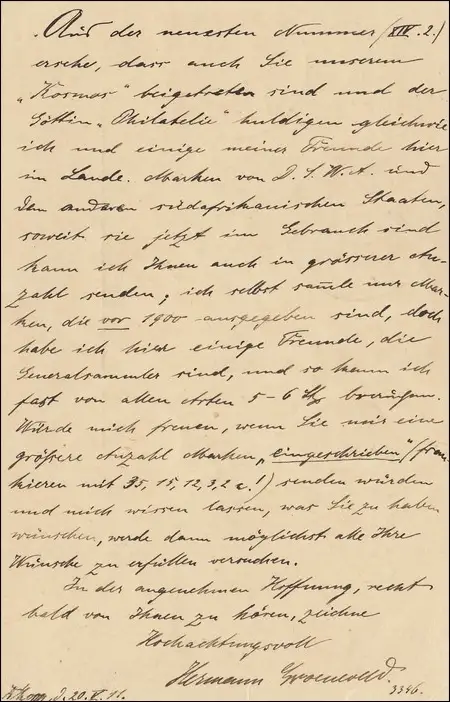 Aus der neuesten Nummer (XIV. 2.)
ersehe, dass auch Sie unserem
„Kosmos" beigetreten sind und der
Göttin „Philatelie" huldigen gleichwie
ich und einige meiner Freunde hier
im Lande. Marken von D. S. W. A. und
den anderen südafrikanischen Staaten,
soweit sie jetzt im Gebrauch sind
kann ich Ihnen auch in grösserer An-
zahl senden; ich selbst samle nur Mar-
ken, die vor 1900 ausgegeben sind, doch
habe ich hier einige Freunde, die
Generalsammler sind, und so kann ich
fast von allen Arten 5-6 besorgen.
Würde mich freuen, wenn Sie mir eine
größere Anzahl Marken „eingeschrieben" (fran-
kieren mit 35, 15, 12, 3, 2 c.!) senden würden
und mich wissen lassen, was Sie zu haben
wünschen, werde dann möglichst alle Ihre
Wünsche zu erfüllen versuchen.
In der angenehmen Hoffnung, recht
bald von Ihnen zu hören, zeichne
Hochachtungsvoll
Hermann Groeneveld.
d. 20. V. 11.
3396.